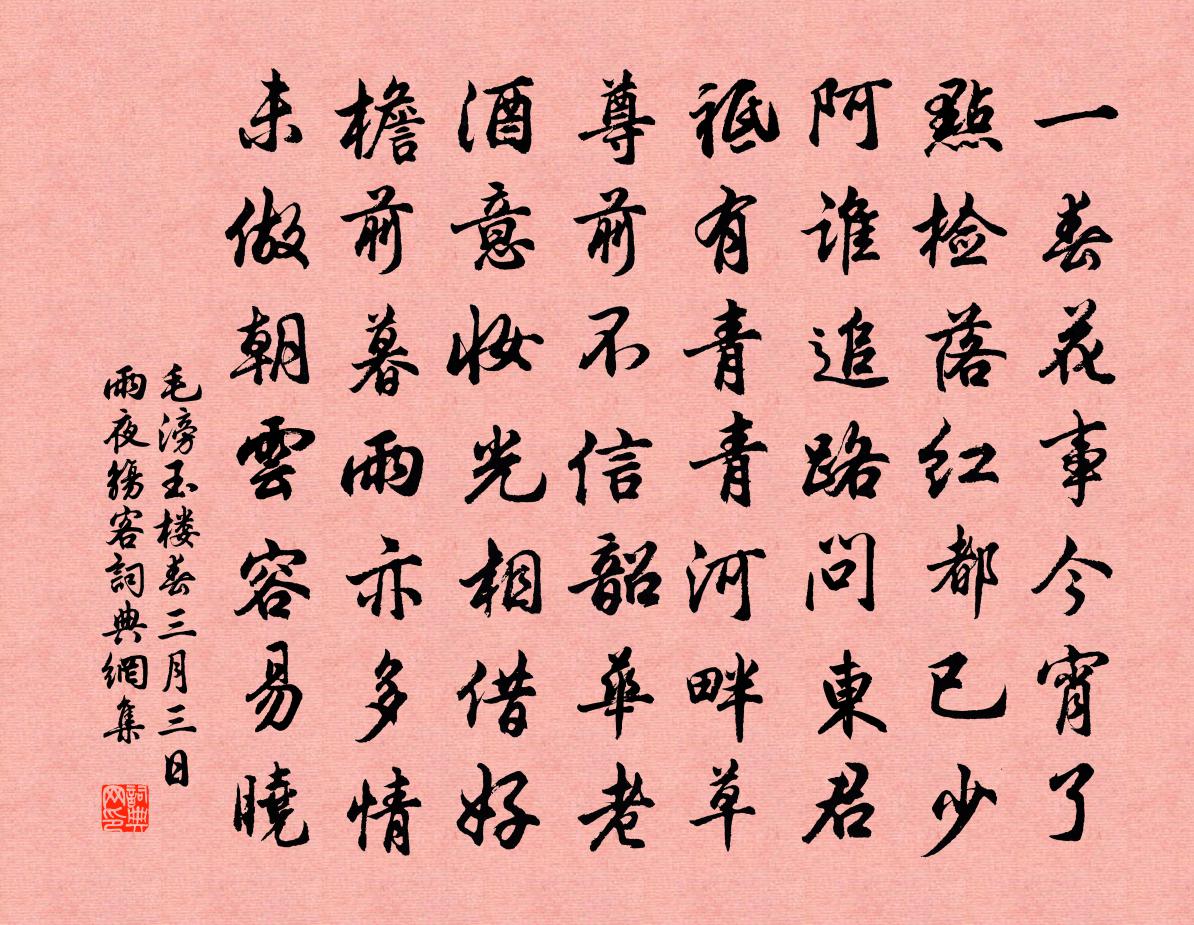 一春花事今宵了
點检落红都已少
阿谁追路问東君
袛有青青河畔草
尊前不信韶華老
酒意妝光相借好
檐前暮雨亦多情
未做朝雲容易曉
毛滂玉楼春三月三日
雨夜觴客詞典網集
詞典网印